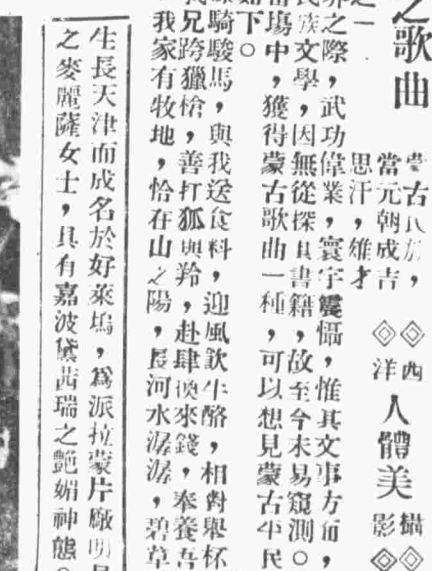 之歌曲
蒙古民族，
當元朝成吉
思汗，雄才
之一
界之際，武功偉業，寰宇震懾，惟其文事方面，
民族文學，因無從探其書籍，故至今未易窺測。
場中，獲得蒙古歌曲一種，可以想見蒙古牛民
如下。
騎駿馬，與我送食料，迎風飲牛酪，相對舉杯
兄跨獵槍，善打狐與羚，赴肆換來錢，奉養吾
我家有牧地，恰在山之陽，長河水潺潺，碧草
◇◇西洋人體美攝影◇◇
生長天津而成名於好萊塢，爲派拉蒙片廠明
之麥麗薩女士，具有嘉波黛茜瑞之艷媚神態。